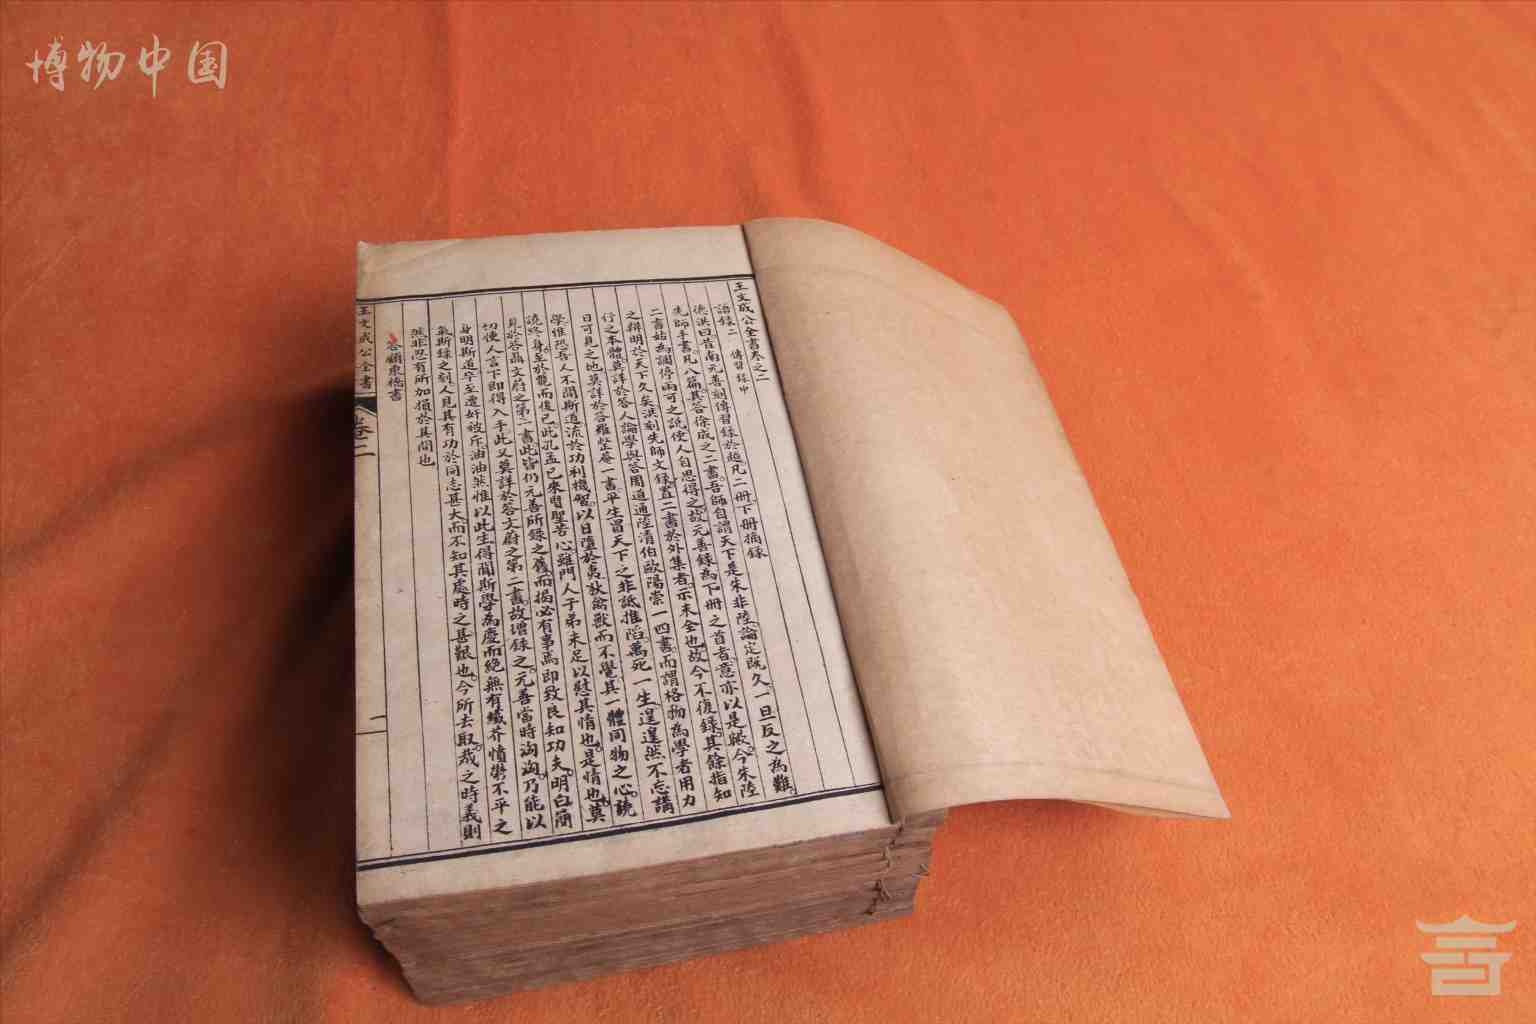 博物中国
王文成公全書卷之二
語錄二 傳習錄中
德洪曰昔南元善刻傳習錄於越凡二冊下冊摘錄
先師手書凡八篇其答徐成之二書吾師自謂天下是朱非陸論定既久一旦反之為難
二書姑為調停兩可之說使人自思得之故元善錄為下冊之首者意亦以是歟今朱陸
之辨明於天下久矣洪刻先師文錄置二書於外集者示未全也故今不復錄其餘指知
行之本體莫詳於答人論學與答周道通陸清伯歐陽崇一四書而謂格物為學者用力
日可見之地莫詳於答羅整菴一書平生冒天下之非詆推陷萬死一生遑遑然不忘講
學惟恐吾人不聞斯道流於功利機智以日墮於夷狄禽獸而不覺其一體同物之心譊
譊終身至於斃而後已此孔孟已來賢聖苦心雖門人子弟未足以慰其情也是情也莫
見於答聶文蔚之第一書此皆仍元善所錄之舊而揭必有事焉即致良知功夫明白簡
切使人言下即得入手此又莫詳於答文蔚之第二書故增錄之元善當時洶洶乃能以
身明斯道卒至遭奸被斥油油然惟以此生得聞斯學為慶而絕無有纖芥憤鬱不平之
氣斯錄之刻人見其有功於同志甚大而不知其處時之甚艱也今所去取裁之時義則
然非忍有所加損於其間也
答顧東橋書
王文成公全書 卷二 二